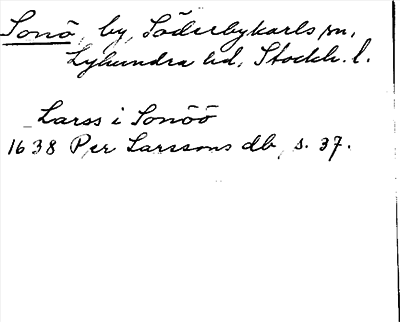 Sonö, by, Söderbykarls sn,
Lyhundra hd, Stockh. l.
Larss i Sonöö
1638 Per Larssons db, s. 37.